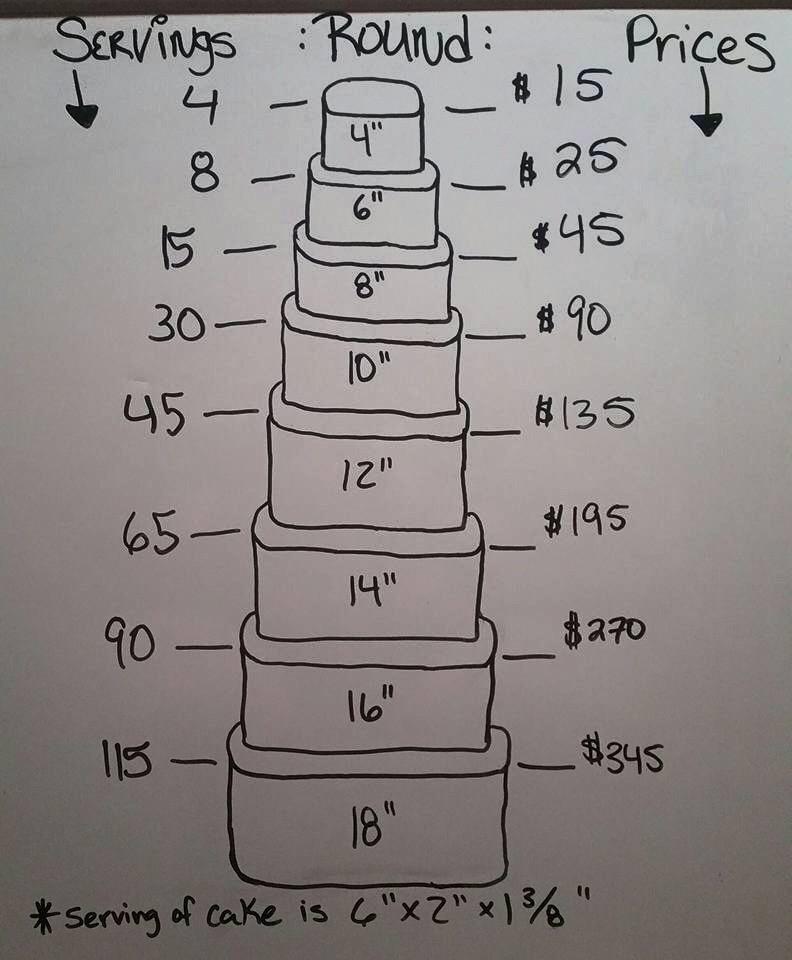 Servings : Round : Prices
4 $ 15
4"
8 $ 25
6"
15 $ 45
8"
30 $ 90
10"
45 $ 135
12"
65 $ 195
14"
90 $ 270
16"
115 $ 345
18"
* serving of cake is 6" x 2" x 1 3/8 "